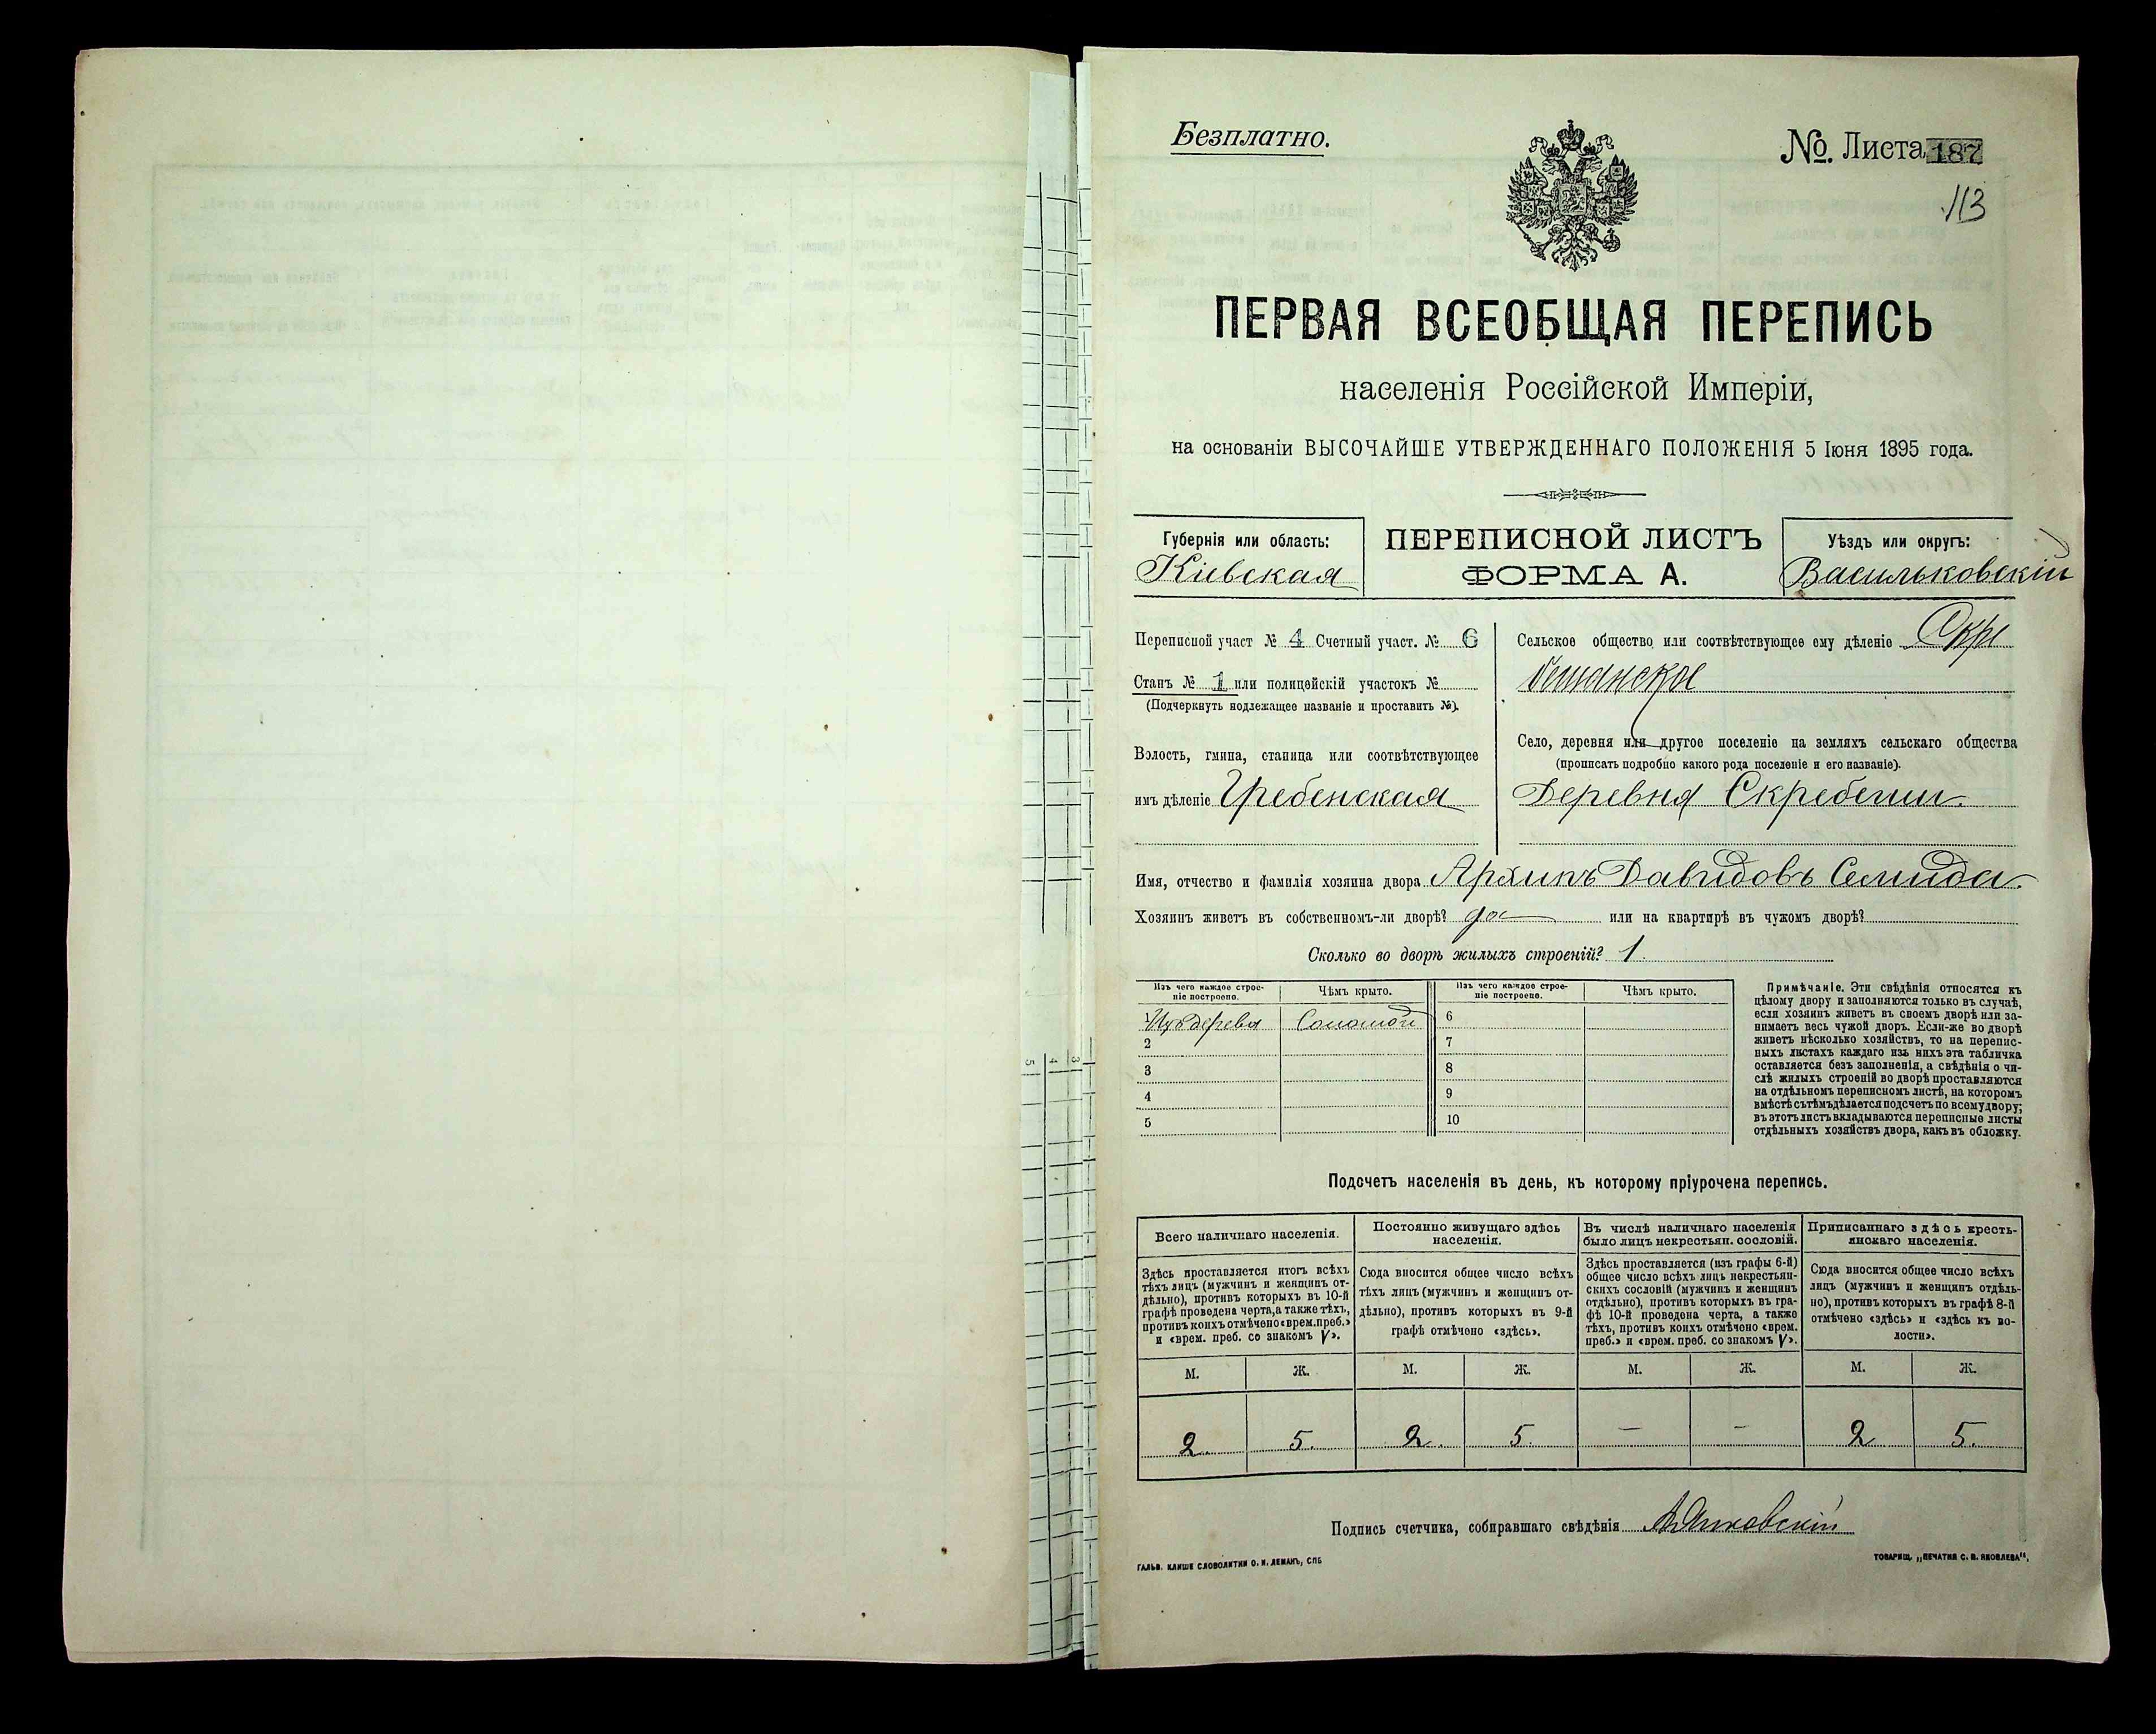 Безплатно.
№. Листа 187
113
ПЕРВАЯ ВСЕОБЩАЯ ПЕРЕПИСЬ
населенія Россійской Имперіи,
на основаніи ВЫСОЧАЙШЕ УТВЕРЖДЕННАГО ПОЛОЖЕНІЯ 5 Іюня 1895 года.
Губернія или область:
Кіевская
ПЕРЕПИСНОЙ ЛИСТЪ
ФОРМА А.
Уѣздъ или округъ:
Васильковскій
Переписной участ № 4 Счетный участ. № 6
Станъ № 1 или полицейскій участокъ №
(Подчеркнуть подлежащее названіе и проставить №).
Волость, гмина, станица или соотвѣтствующее
имъ дѣленіе Гребенская
Сельское общество или соотвѣтствующее ему дѣленіе Скре
бешанское
Село, деревня или другое поселеніе на земляхъ сельскаго общества
(прописать подробно какого рода поселеніе и его названіе).
Деревня Скребеши.
Имя, отчество и фамилія хозяина двора Архипъ Давидовъ
Хозяинъ живетъ въ собственномъ-ли дворѣ? да или на квартирѣ въ чужомъ дворѣ?
Сколько во дворѣ жилыхъ строеній? 1.
Изъ чего каждое строе-
ніе построено.
Чѣмъ крыто.
Изъ чего каждое строе-
ніе построено.
Чѣмъ крыто.
Изъ дерева Соломой 6
2 7
3 8
4 9
5 10
Примѣчаніе. Эти свѣдѣнія относятся къ
цѣлому двору и заполняются только въ случаѣ,
если хозяинъ живетъ въ своемъ дворѣ или за-
нимаетъ весь чужой дворъ. Если-же во дворѣ
живетъ нѣсколько хозяйствъ, то на перепис-
ныхъ листахъ каждаго изъ нихъ эта табличка
оставляется безъ заполненія, а свѣдѣнія о чи-
слѣ жилыхъ строеній во дворѣ проставляются
на отдѣльномъ переписномъ листѣ, на которомъ
вмѣстѣ съ тѣмъ дѣлается подсчетъ по всему двору;
въ этотъ листъ вкладываются переписные листы
отдѣльныхъ хозяйствъ двора, какъ въ обложку.
Подсчетъ населенія въ день, къ которому пріурочена перепись.
Всего наличнаго населенія.
Здѣсь проставляется итогъ всѣхъ
тѣхъ лицъ (мужчинъ и женщинъ от-
дѣльно), противъ которыхъ въ 10-й
графѣ проведена черта, а также тѣхъ,
противъ коихъ отмѣчено «врем. преб.»
и «врем. преб. со знакомъ V».
Постоянно живущаго здѣсь
населенія.
Сюда вносится общее число всѣхъ
тѣхъ лицъ (мужчинъ и женщинъ от-
дѣльно), противъ которыхъ въ 9-й
графѣ отмѣчено «здѣсь».
Въ числѣ наличнаго населенія
было лицъ некрестьян. сословій.
Здѣсь проставляется (изъ графы 6-й)
общее число всѣхъ лицъ некрестьян-
скихъ сословій (мужчинъ и женщинъ
отдѣльно), противъ которыхъ въ гра-
фѣ 10-й проведена черта, а также
тѣхъ, противъ коихъ отмѣчено «врем.
преб.» и «врем. преб. со знакомъ V».
Приписаннаго здѣсь кресть-
янскаго населенія.
Сюда вносится общее число всѣхъ
лицъ (мужчинъ и женщинъ отдѣль-
но), противъ которыхъ въ графѣ 8-й
отмѣчено «здѣсь» и «здѣсь къ во-
лости».
М. Ж. М. Ж. М. Ж. М. Ж.
2. 5. 2. 5. — — 2 5.
Подпись счетчика, собиравшаго свѣдѣнія
ГАЛЬВ. КЛИШЕ СЛОВОЛИТНИ О. И. ЛЕМАНЪ, СПБ
ТОВАРИЩ. „ПЕЧАТНЯ С. П. ЯКОВЛЕВА",
5 4 3